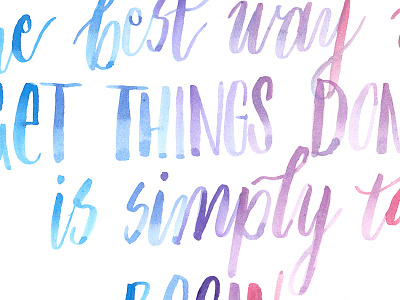 he best way
GET THINGS DON
is simply t